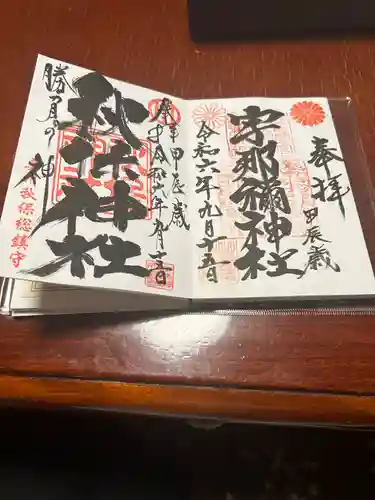 奉拝
甲辰歳
宇那禰神社
令和六年九月十五日
奉拝
甲辰歳
令和六年九月十五日
秋保神社
勝負の神
秋保総鎮守